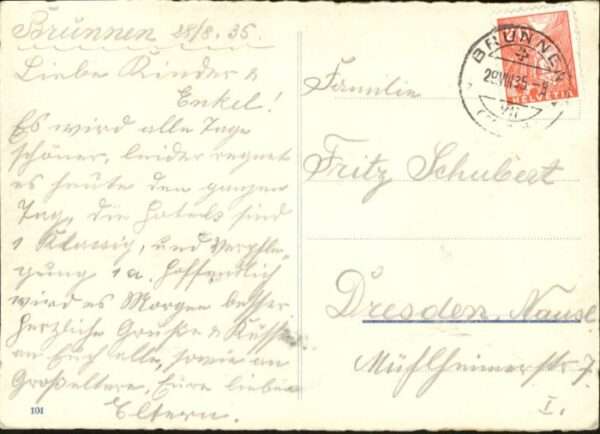 Brunnen 28/8.35.
Liebe Kinder &
Enkel!
Es wird alle Tage
schöner, leider regnet
es heute den ganzen
Tag, die Hotels sind
1 Klassig, und Verpfle-
gung 1a. Hoffendlich
wird es Morgen besser
herzliche Grüße & Küsse
an Euch alle, sowie an
Großeltern, Eure lieben
Eltern.
101
BRUNNEN
28.VIII.35-9
HELVETIA
Familie
Fritz Schubert
Dresden, Nausl
Müglheimerstr 7
I.